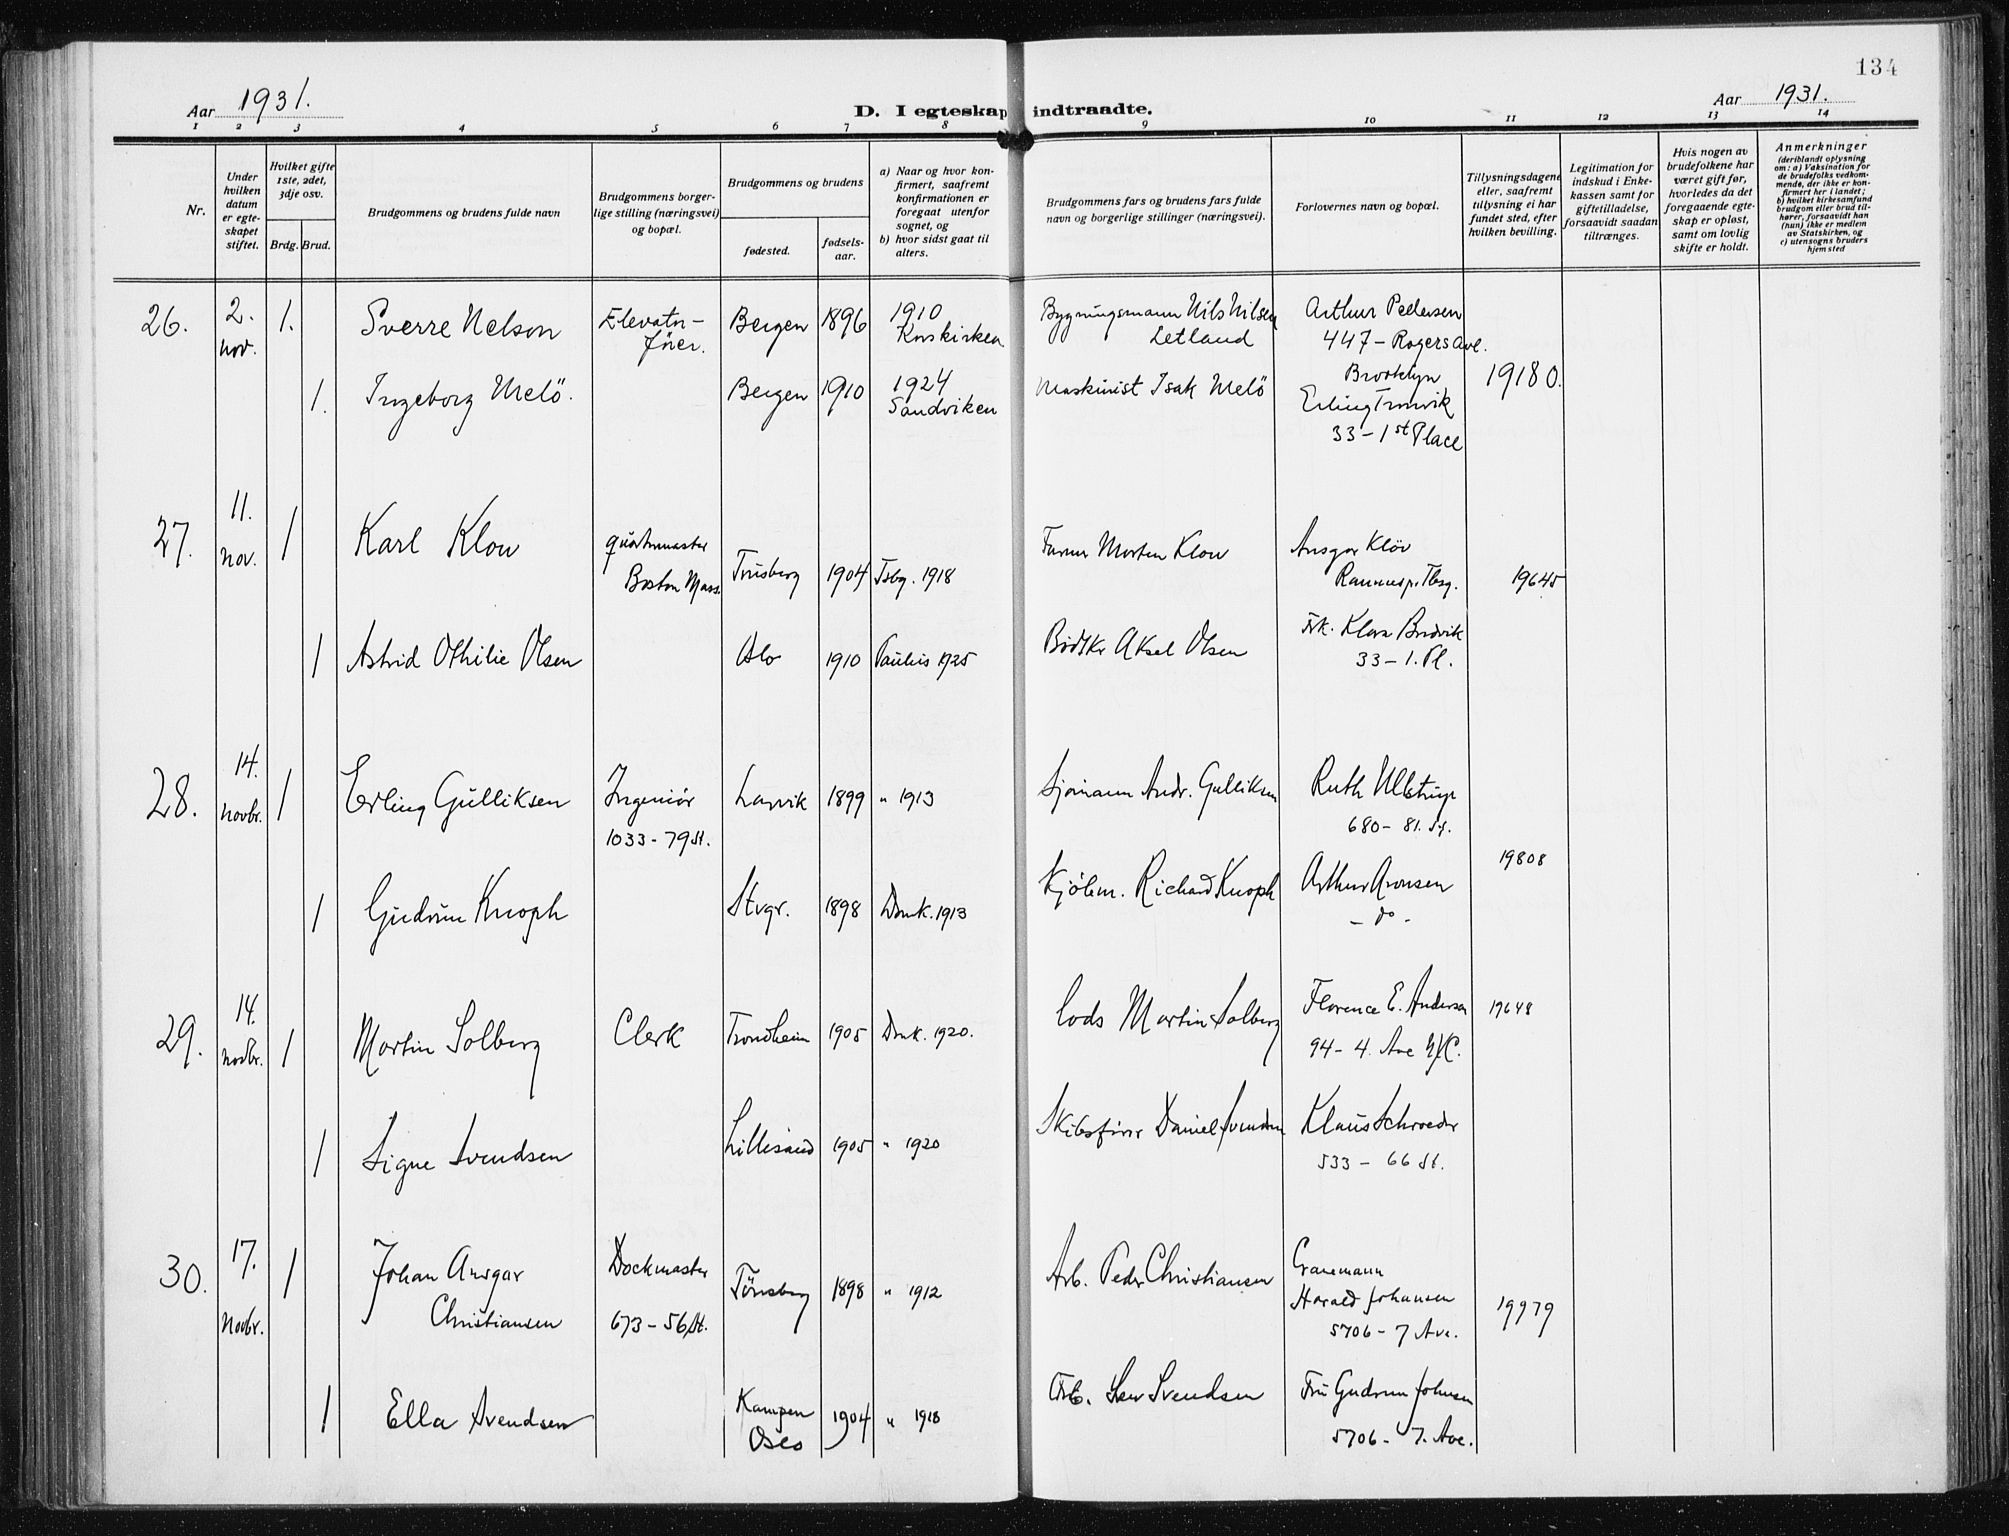 134
Aar 1931.
D. I egteskap indtraadte.
Aar 1931.
1 2 3 4 5 6 7 8 9 10 11 12 13 14
Nr.
Under hvilken datum er egteskapet stiftet.
Hvilket gifte 1ste, 2det, 3dje osv.
Brdg. Brud.
Brudgommens og brudens fulde navn
Brudgommens borgerlige stilling (næringsvei) og bopæl.
Brudgommens og brudens
fødested.
fødsels-aar.
a) Naar og hvor konfirmert, saafremt konfirmationen er foregaat utenfor sognet, og
b) hvor sidst gaat til alters.
Brudgommens fars og brudens fars fulde navn og borgerlige stillinger (næringsvei).
Forlovernes navn og bopæl.
Tillysningsdagene eller, saafremt tillysning ei har fundet sted, efter hvilken bevilling.
Legitimation for indskud i Enkekassen samt for giftetilladelse, forsaavidt saadan tiltrænges.
Hvis nogen av brudefolkene har været gift før, hvorledes da det foregaaende egteskap er opløst, samt om lovlig skifte er holdt.
Anmerkninger
(deriblandt oplysning om: a) Vaksination for de brudefolks vedkommende, der ikke er konfirmert her i landet; b) hvilket kirkesamfund brudgom eller brud tilhører, forsaavidt han (hun) ikke er medlem av Statskirken, og c) utensogns bruders hjemsted
26. 2. nov. 1. Sverre Nelson Elevatør-fører. Bergen 1896 1910 Korskirken Bygningsmann Nils Nilsen Letland Arthur Pedersen
447 - Rogers Ave.
Brooklyn
1. Ingeborg Melö. Bergen 1910 1924 Sandviken Maskinist Isak Melö Erling 19180.
33 - 1st Place
27. 11. nov. 1 Karl Klow Quatermaster Boston Mass. Tönsberg 1904 Tsbg. 1918 Farmer Morten Klow Ansgar Klöv
19645
1 Astrid Othilie Olsen Oslo 1910 Paulus 1925 Bødtker Aksel Olsen Frk. Klara Bredvik
33 - 1. Pl.
28. 14. Novbr. 1 Erling Gulliksen Ingeniör 1033 - 79 St. Larvik 1899 " 1913 Sjömann Andr. Gulliksen Ruth Ulstrup
680 - 81. St.
19808
1 Gudrun Knoph Stvgr. 1898 Dmk. 1913 Kjöbm. Richard Knoph Arthur Aronsen
- do -
29. 14. Novbr. 1 Martin Solberg Clerk Trondheim 1905 Dmk. 1920. Lods Martin Solberg Florence E. Anderson 19648
94 - 4. Ave NYC.
1 Signe Svendsen Lillesand 1905 " 1920 Skibsfører Daniel Svendsen Klaus Schroeder
533 - 66 St.
30. 17. Novbr. 1 Johan Ansgar Christiansen Dockmaster 673 - 56 St. Tönsberg 1898 " 1912 Arb. Peder Christiansen Cranemann
Harald Johansen 19979
5706 - 7 Ave.
1 Ella Svendsen Kampen Oslo 1904 " 1918 Arb. Svendsen Fru Gudrun Johnsen
5706 - 7. Ave.